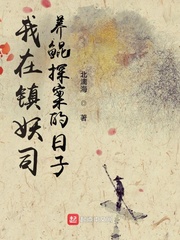 我在镇妖司
养鲲探案的日子
北溟海 著